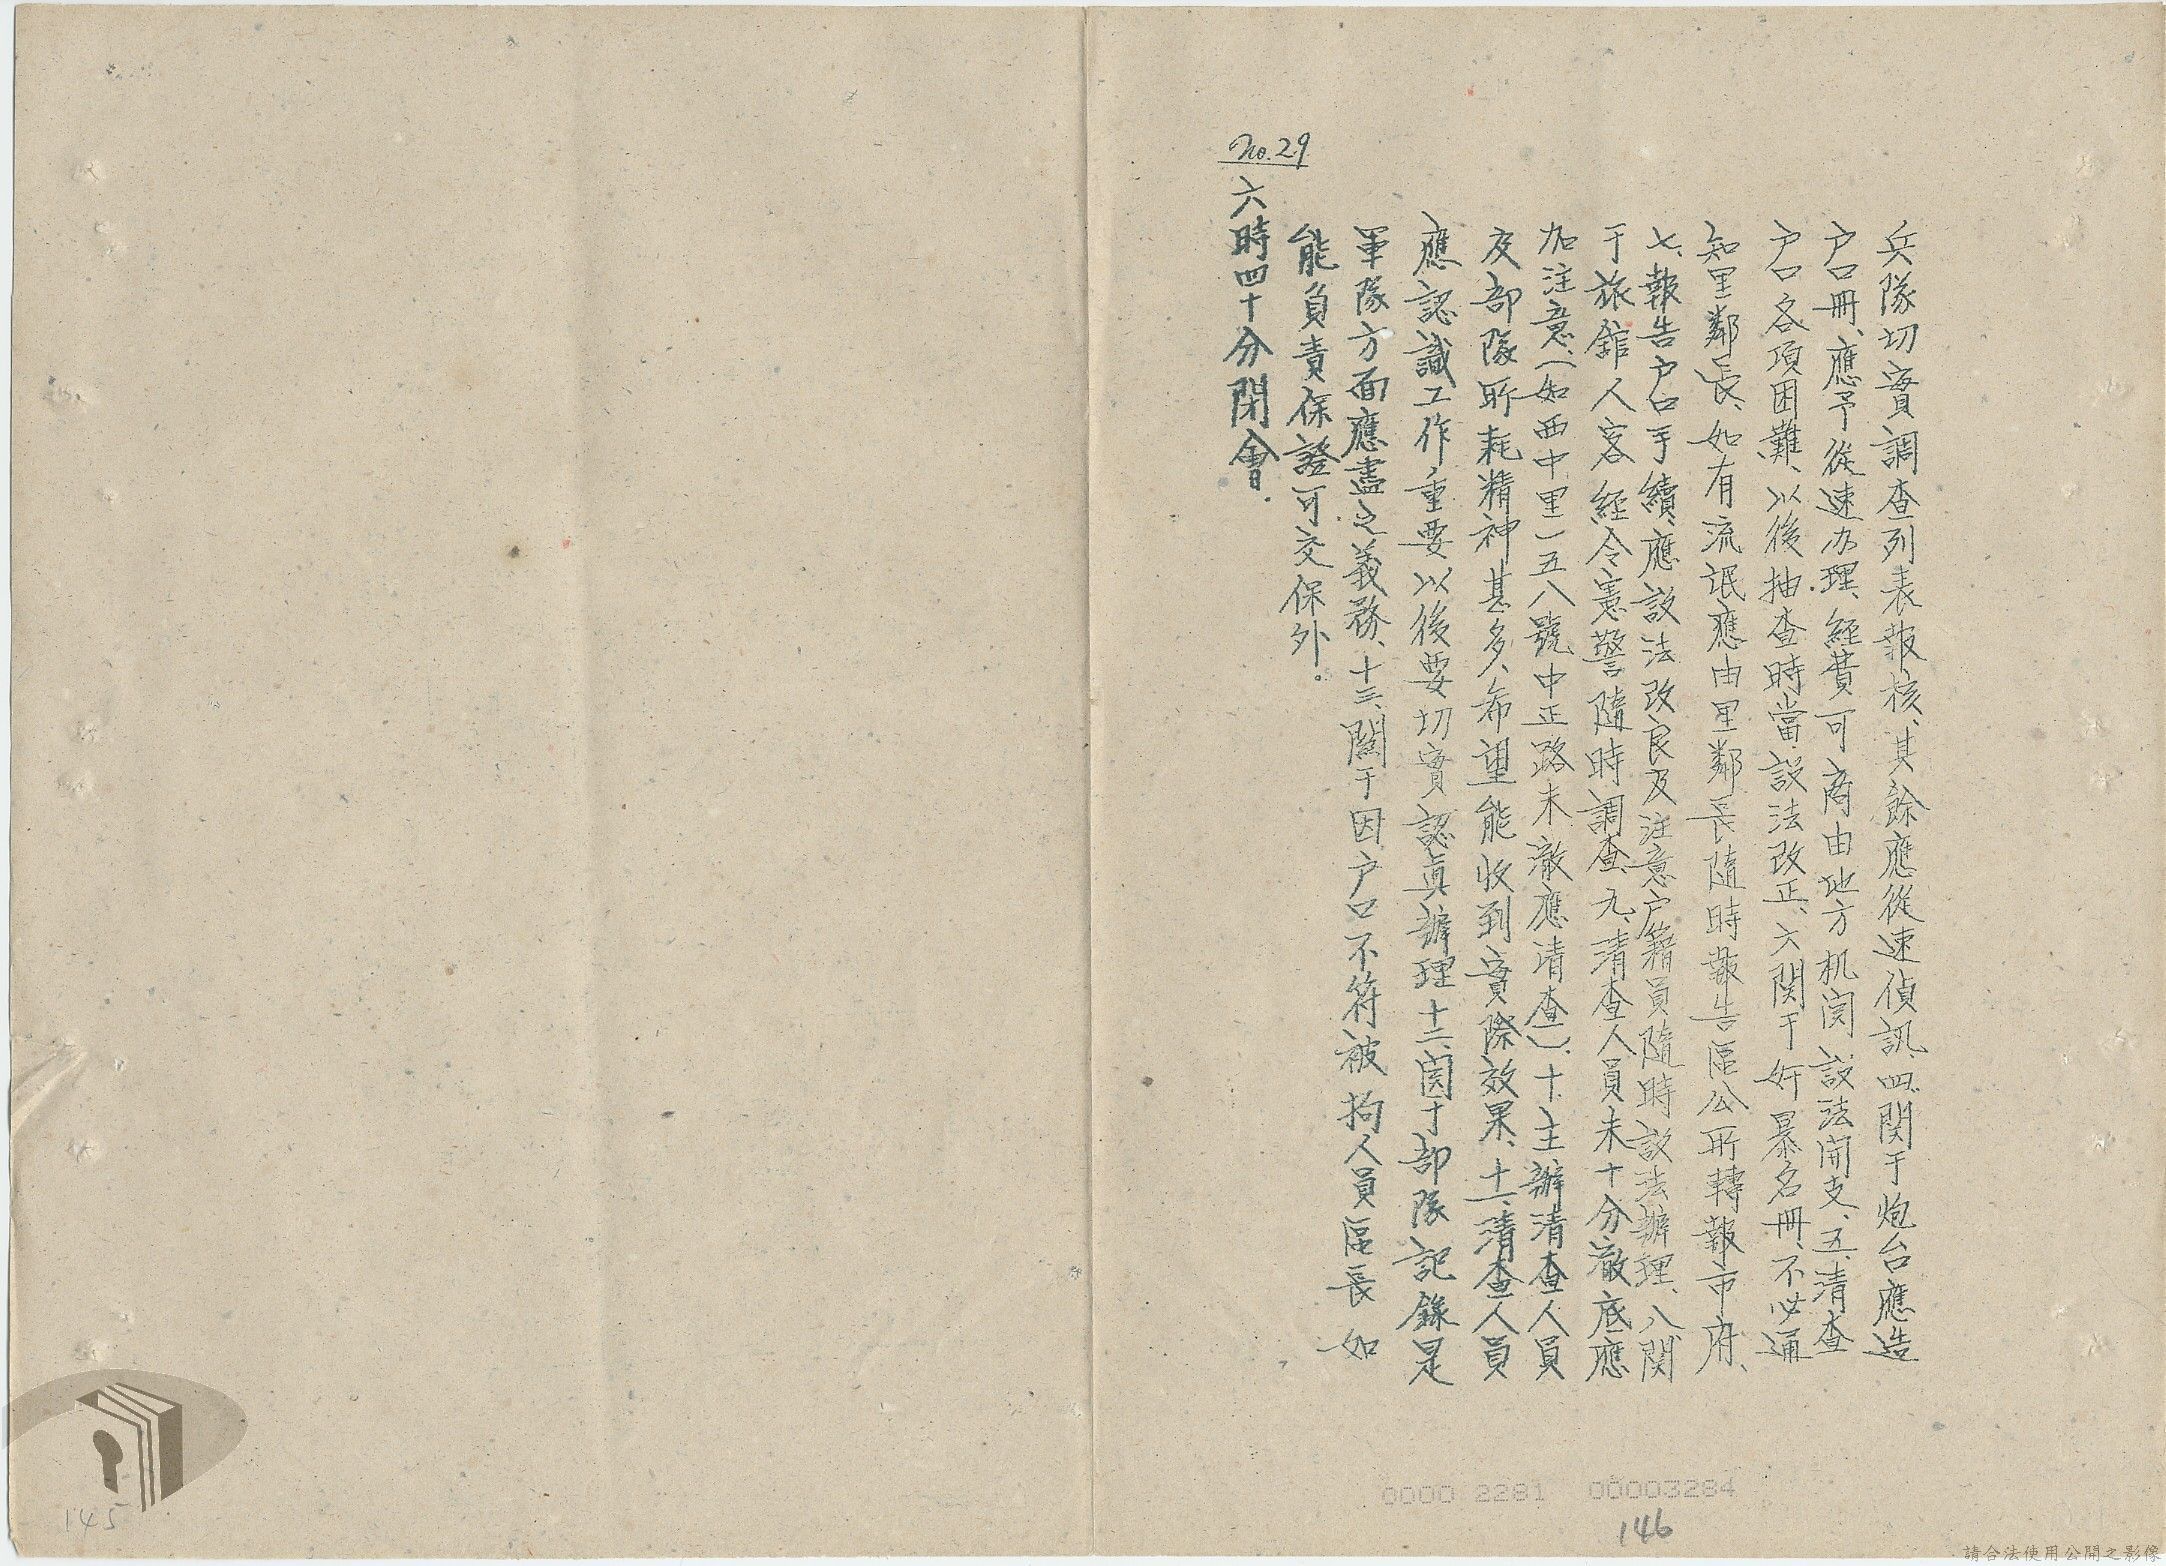 兵隊切實調查列表報核、其餘應從速偵訊、四、関于炮台應造
户口冊、應予從速办理、經費可商由地方机関設法開支、五、清查
户口各項困難、以後抽查時當設法改正、六関于奸暴名冊、不必通
知里鄰長、如有流氓應由里鄰長隨時報告區公所轉報市府、
七、報告户口手續、應設法改良及注意户籍員隨時設法辦理、八関
于旅館人客經令憲警隨時調查、九、清查人員未十分澈底應
加注意、(如西中里一五八號中正路未澈應清查)、十、主辦清查人員
及部隊所耗精神甚多、希望能收到實際效果、十一、清查人員
應認識工作重要以後要切實認真辦理十二、関于部隊記錄是
軍隊方面應盡之義務、十三、關于因户口不符被拘人員區長如
能負責保證可交保外。
No.29
六時四十分閉會.
0000 2281 00003284
146
145
請合法使用公開之影像